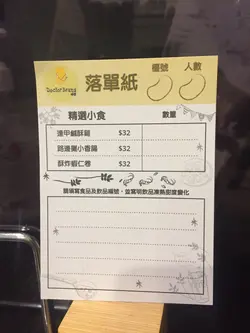 落單紙
檯號 人數
精選小食 數量
逢甲鹹酥雞 $32
路邊攤小香腸 $32
酥炸蝦仁卷 $32
請填寫食品及飲品編號，並寫明飲品凍熱甜度變化